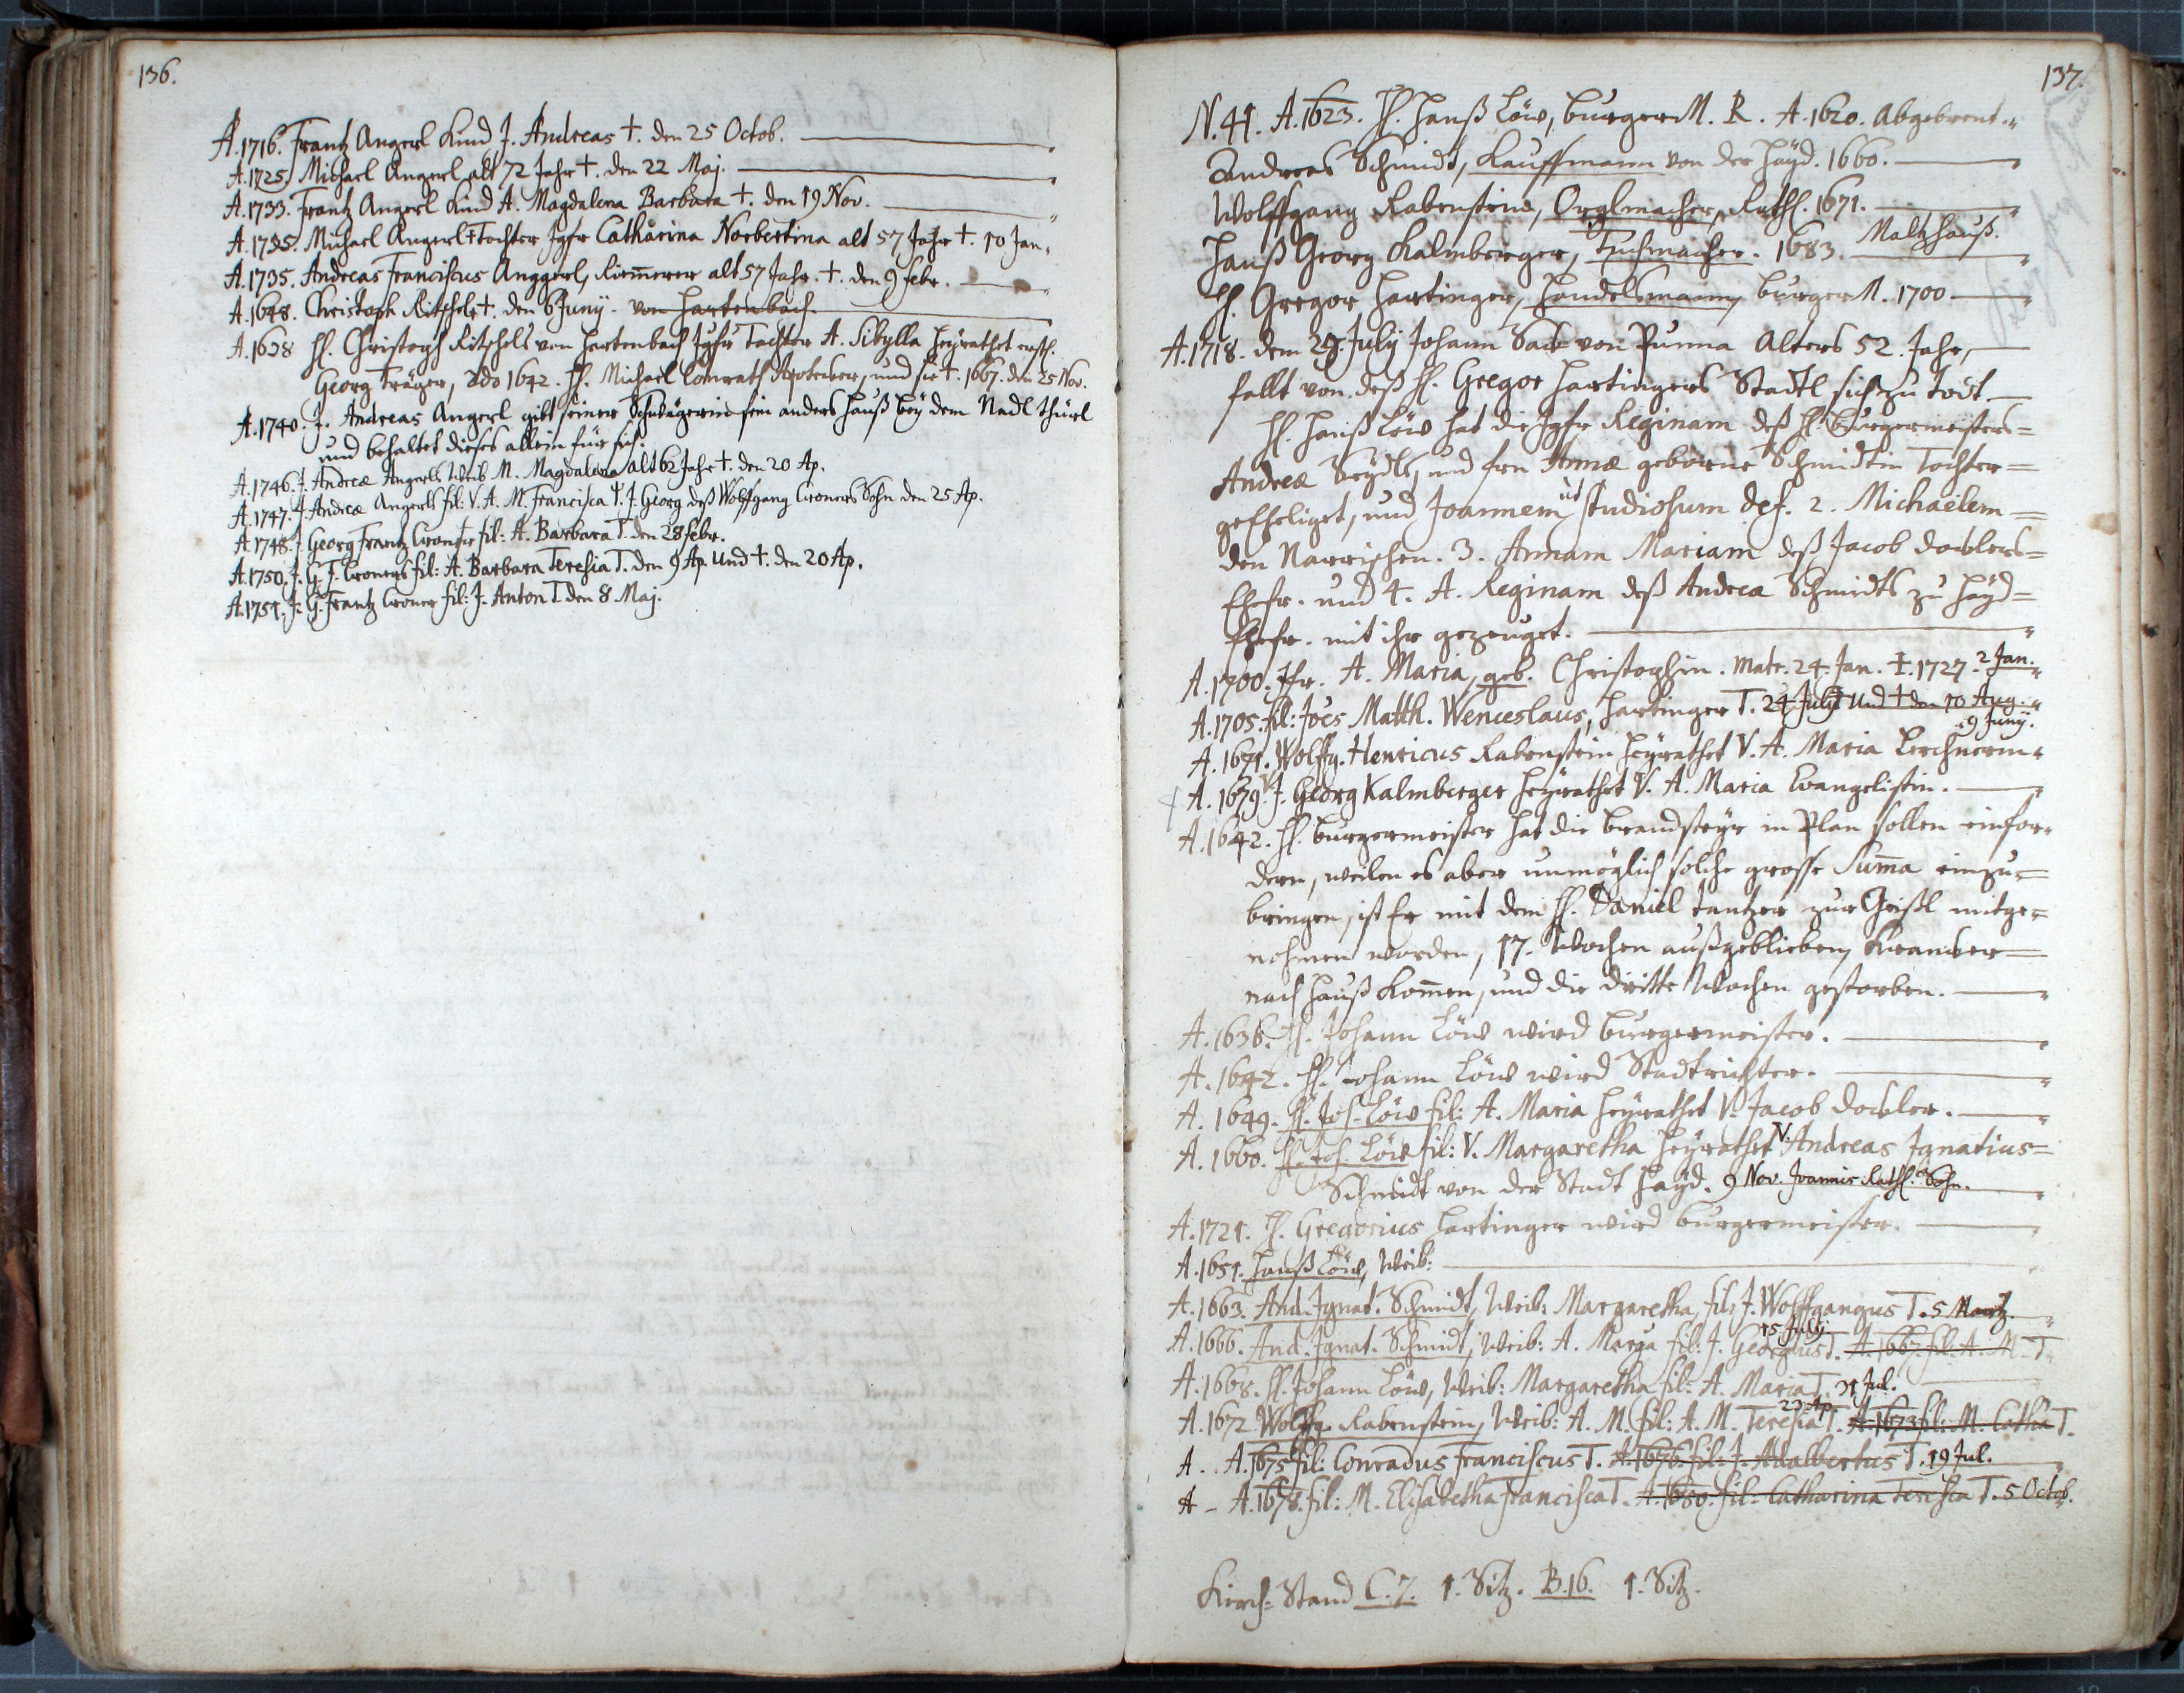 136.
A. 1716. Frantz Angerl Kind J. Andreas †. den 25 Octob.
A. 1725. Michael Angerl alt 72 Jahr †. den 22 Maj.
A. 1733. Frantz Angerl Kind A. Magdalena Barbara †. den 19 Nov.
A. 1735. Michael Angerl Tochter Jgfr Catharina Norbertina alt 57 Jahr †. 10 Jan.
A. 1735. Andreas Franciscus Anggerl, Riemerer alt 57 Jahr. †. den 9 febr.
A. 1648. Christoph Ritschel †. den 6 Junij. von Hartenbach
A. 1638 H. Christoph Ritschels von Hartenbach Jgfr Tochter A. Sibylla heyrathet erstl.
Georg Träger, Ado 1642. H. Michael Conrath Apotecker, und sie †. 1667. den 25 Nov.
A. 1740. J. Andreas Angerl gibt seiner Schwägerin sein anders Hauß bey dem Nadl thürl
und behaltet dieses allein für sich.
A. 1746. J. Andreæ Angerls Weib M. Magdalena alt 62 Jahr †. den 20 Ap.
A. 1747. J. Andreæ Angerls fil: V. A. M. Francisca †. J. Georg deß Wolffgang Croners Sohn den 25 Ap.
A. 1748. J. Georg Frantz Croners fil: A. Barbara T. den 28 febr.
A. 1750. J. G. F. Croners fil: A. Barbara Teresia T. den 9 Ap. und †. den 20 Ap.
A. 1751. J. G. Frantz Croner fil: J. Anton T. den 8 Maj.
137.
N. 41. A. 1623. H. Hanß Löw, burger M. R. A. 1620. Abgebrent.
Andreas Schmidt, Kauffmann von der Hayd. 1660.
Wolffgang Rabenstein, Orglmacher, Rathl. 1671.
Hanß Georg Kalmberger, Tuchmacher. 1683. Maltzhauß.
H. Gregor Hartinger, Handelsmann, burger M. 1700
A. 1718. dem 29. July Johann Sack von Punna Alters 52. Jahr,
fallt von deß H. Gregor Hartingers Stadtl sich zu todt
H. Hanß Löw hat die Jgfr Reginam deß H. Burgermeisters
Andreæ Seydls, und frn Annæ geborne Schmidtin Tochter
geEheliget, und Joannem ut studiosum def. 2. Michaëlem
den Narrischen. 3. Annam Mariam deß Jacob Docklers
Ehefr. und 4. A. Reginam deß Andreæ Schmidts zu Hayd
Ehefr. mit ihr gezeuget.
A. 1700. Ffr. A. Maria, geb. Christophin. Matr. 24. Jan. †. 1727. 2 Jan.
A. 1705. fil: Joës Matth. Wenceslaus, Hartinger T. 24 Julij und † den 10 Aug.
A. 1671. Wolffg. Henricus Rabenstein heyrathet V. A. Maria Lerchnerin 9 Junij.
A. 1679. J. Georg Kalmberger heyrathet V. A. Maria Evangelistin.
A. 1642. H. burgermeister hat die brandsteyr in Plan sollen einfor-
dern, weilen es aber unmöglich solche grosse Suma einzu-
bringen, ist Er mit dem H. Daniel Tantzer zur Geißl mitge-
nohmen worden, 17. Wochen außgeblieben, Krancker
nach Hauß komen, und die dritte Wochen gestorben.
A. 1636. H. Johann Löw wird burgermeister.
A. 1642. H. Johann Löw wird Stadtrichter.
A. 1649. H. Joh. Löw fil: A. Maria heyrathet V. Jacob Dockler.
A. 1660. H. Joh. Löw fil: V. Margaretha heyrathet V. Andreas Ignatius
Schmidt von der Stadt Hayd. 9 Nov. Joannis Rathl. Sohn.
A. 1721. H. Gregorius Hartinger wird burgermeister.
A. 1651. Hanß Löw, Weib:
A. 1663. And. Ignat. Schmidt, Weib: Margaretha, fil: J. Wolffgangus T. 5 Martz.
A. 1666. And. Ignat. Schmidt, Weib: A. Marga fil: J. Georgius T. 15 Julij. A. 1667 fil. A. M. T.
A. 1668. H. Johann Löw, Weib: Margaretha fil: A. Maria T. 31 Jul.
A. 1672 Wolffg. Rabenstein, Weib: A. M. fil: A. M. Teresia T. 23 Ap. A. 1673 fil: M. Catha T.
A. . A. 1675 fil: Conradus Franciscus T. A. 1676. fil: J. Adalbertus T. 19 Jul.
A - A. 1678. fil: M. Elisabetha Francisca T. A. 1680. fil: Catharina Teresia T. 5 Octob.
Kirch: Stand C. 7. 1. Sitz. B. 16. 1. Sitz.